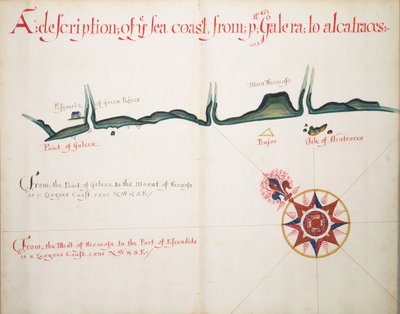 A: description; of yͤ sea coast from; pͭ Galera; to alcatraces:
Pesqueria of Green River
Mirro Hermoso
Point of Galera
Bajos
Isle of Alcatraces
From, the Point of Galera, to the Mount of Hermoso
is 7 Leagues Coast runs N.W.S.E.
From, the Mount of Hermoso to the Port of Escondido
is 8 Leagues Coast runs N.W.S.E.